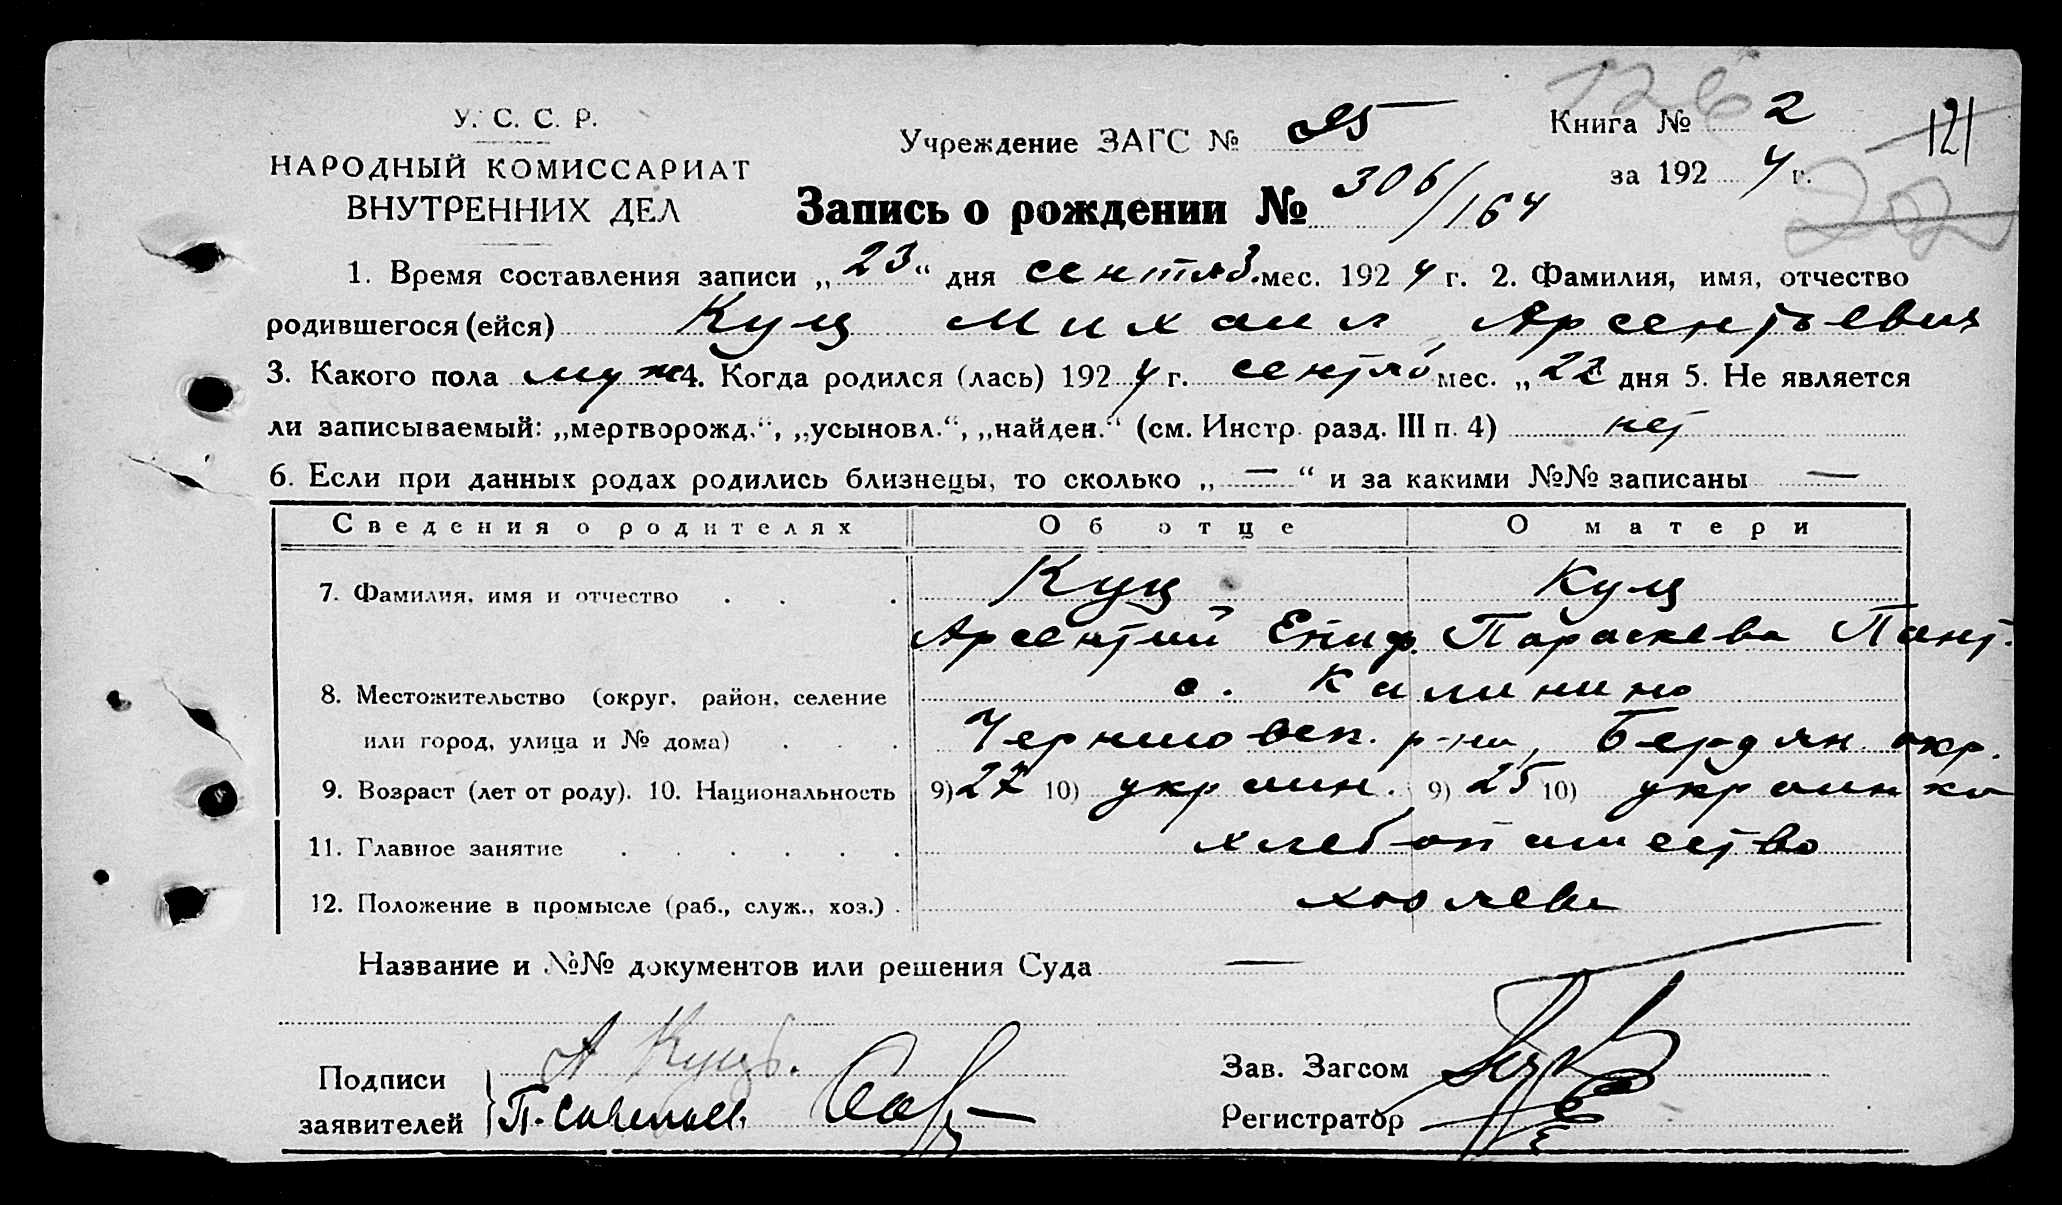 У. С. С. Р.
НАРОДНЫЙ КОМИССАРИАТ
ВНУТРЕННИХ ДЕЛ
Учреждение ЗАГС №
Книга № 2
за 1924 г.
121
126
202
Запись о рождении № 306/164
1. Время составления записи „23“ дня сентяб. мес. 1924 г. 2. Фамилия, имя, отчество
родившегося (ейся) Куц Михаил Арсентьевич
3. Какого пола муж 4. Когда родился (лась) 1924 г. сентяб мес. „22 дня 5. Не является
ли записываемый: „мертворожд.“, „усыновл.“, „найден.“ (см. Инстр. разд. III п. 4) нет
6. Если при данных родах родились близнецы, то сколько „—“ и за какими №№ записаны —
Сведения о родителях Об отце О матери
7. Фамилия, имя и отчество Куц Куц
Арсентий Епиф. Параскева Пант.
8. Местожительство (округ, район, селение с. Калинино
или город, улица и № дома) Черниговск. р-на, Бердян. окр.
9. Возраст (лет от роду). 10. Национальность 9) 27 10) украин. 9) 25 10) украинка
11. Главное занятие хлебопашество
12. Положение в промысле (раб., служ., хоз.) хозяева
Название и №№ документов или решения Суда —
Подписи
заявителей
А Куць.
Зав. Загсом
Регистратор